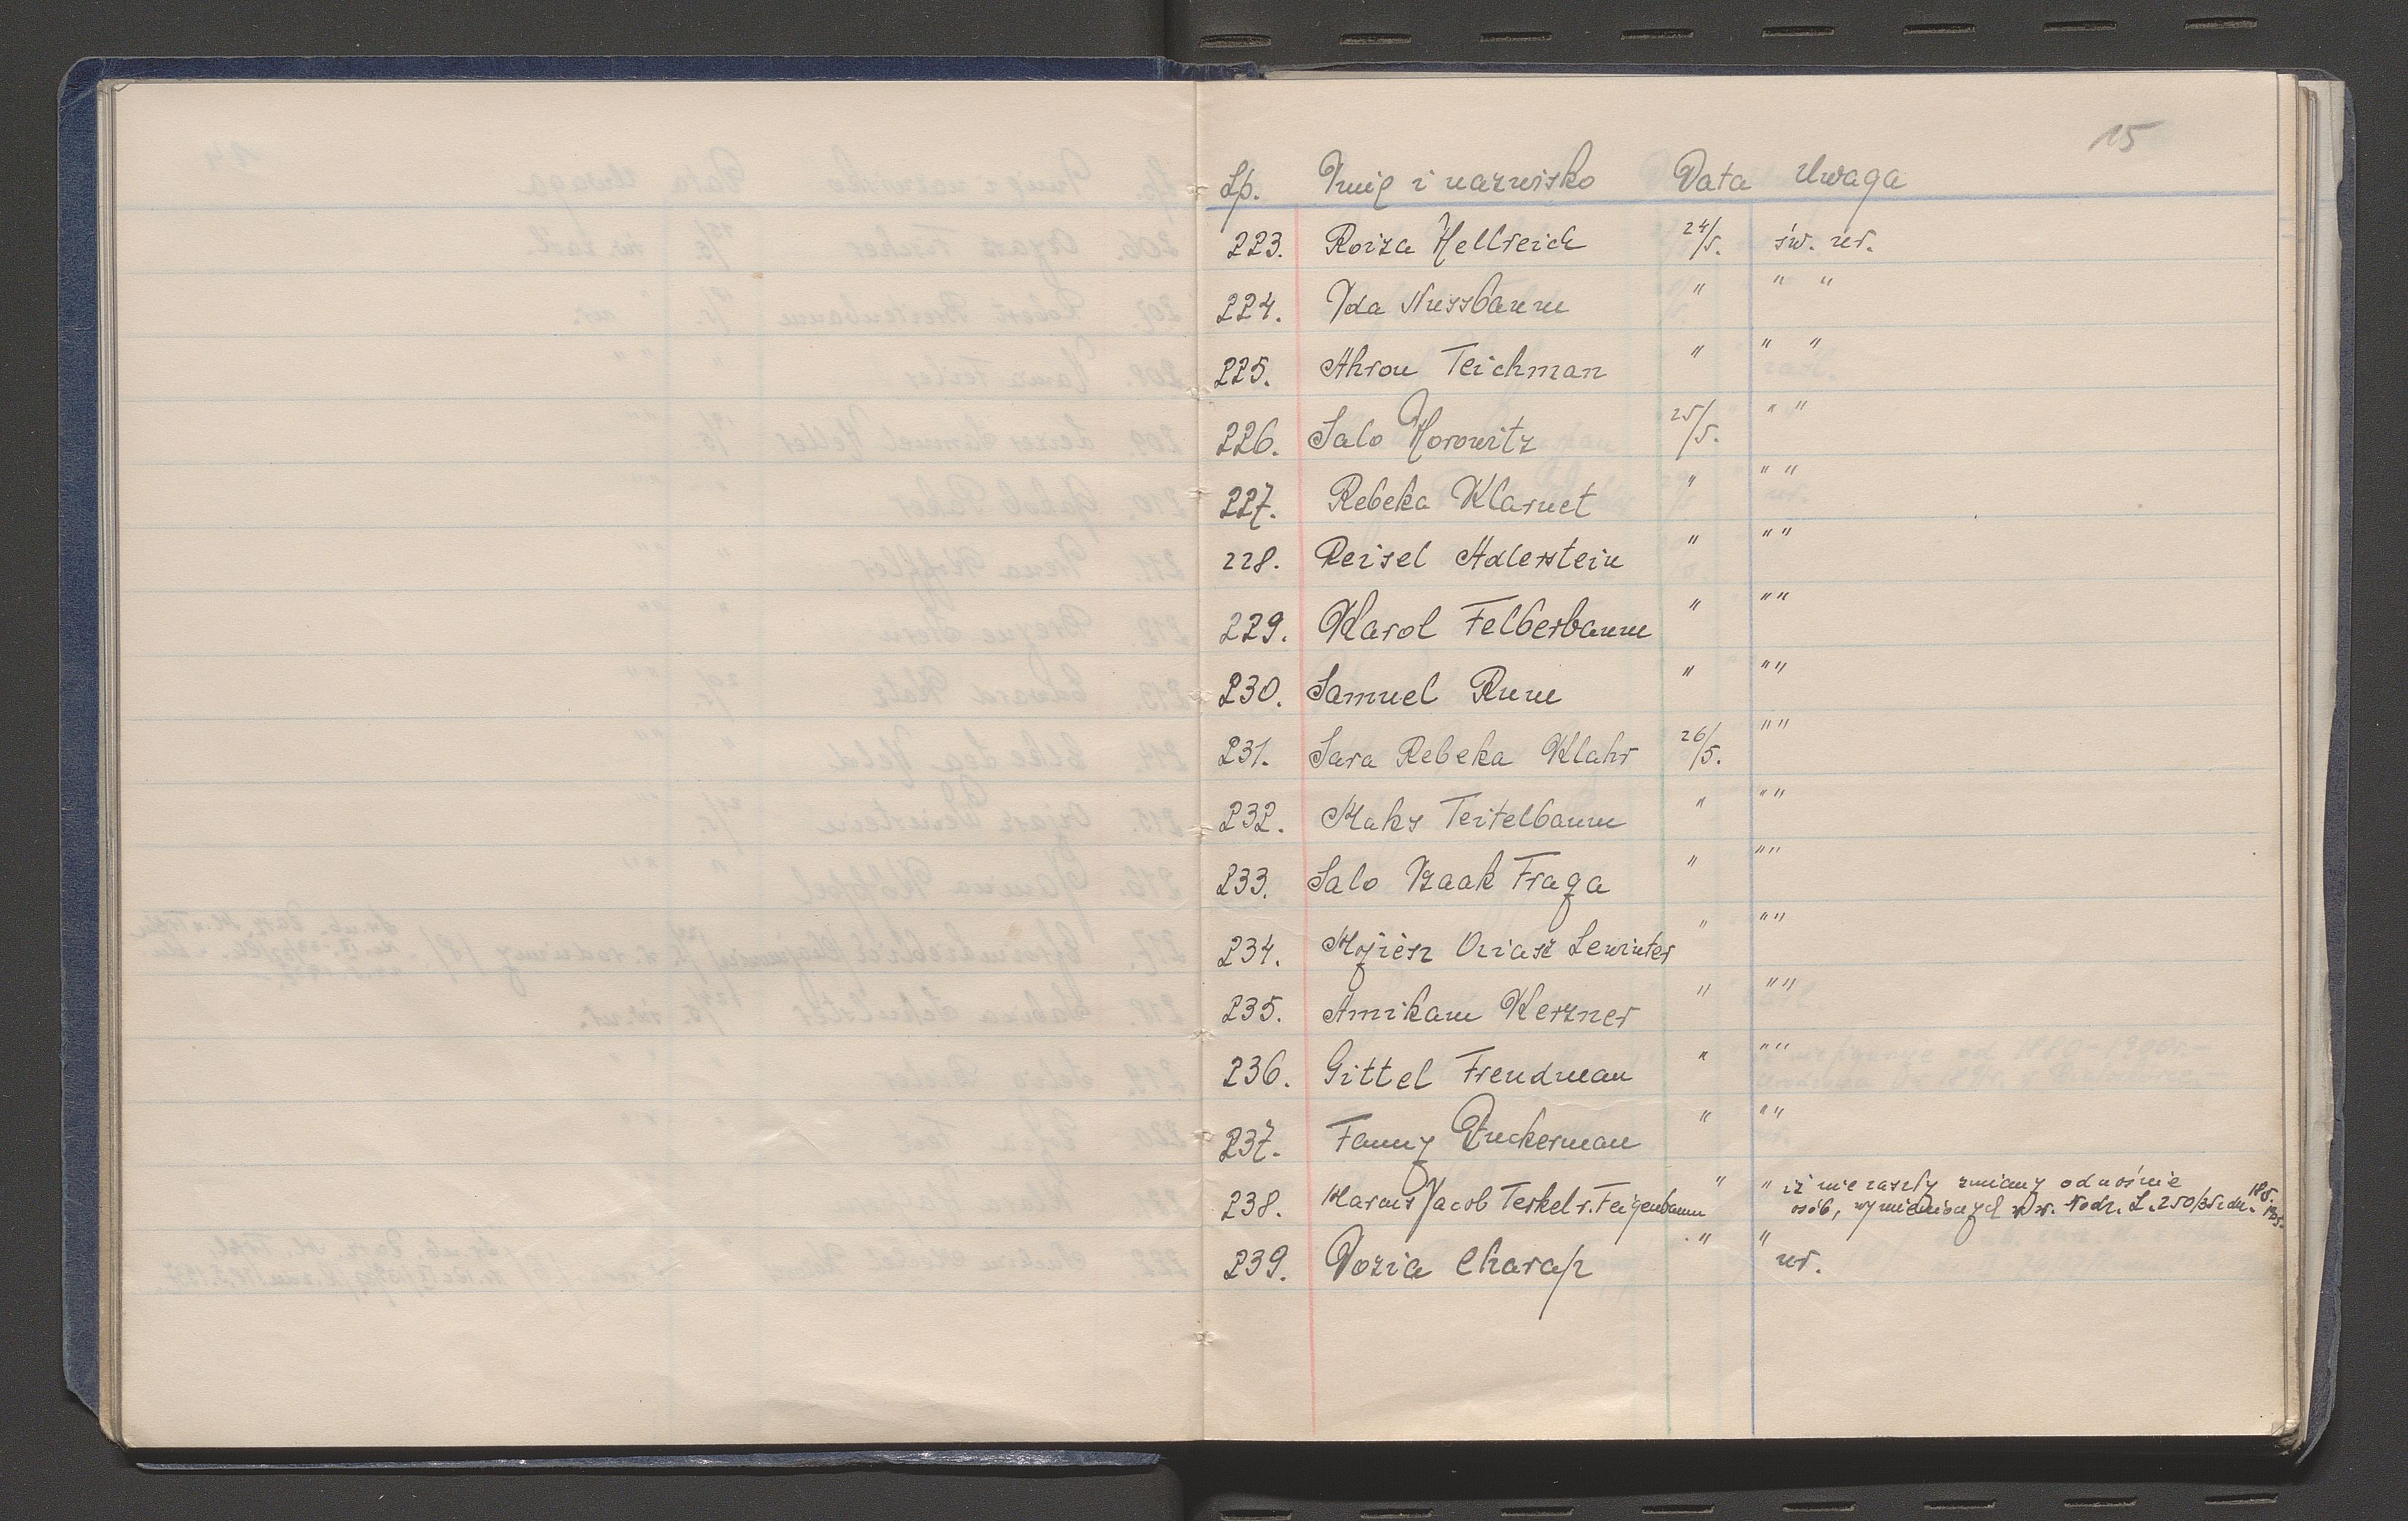 15
Lp. Imię i nazwisko Data Uwaga
223. Roiza Hellreich 24/5. św. ur.
224. Ida Nussbaum " " "
225. Ahron Teichman " " "
226. Salo Horowitz 25/5. " "
227. Rebeka Klarnet " " "
228. Reisel Adlerstein " " "
229. Karol Felberbaum " " "
230. Samuel Rum " " "
231. Sara Rebeka Klahr 26/5. " "
232. Maks Teitelbaum " " "
233. Salo Izaak Fraga " " "
234. Mojżesz Oziasz Lewinter " " "
235. Amikam Kerzner " " "
236. Gittel Freudman " " "
237. Fanny Zuckerman " " "
238. Jacob Terkel v. Feigenbaum " " iż nie zaszły zmiany odnośnie
osób, wymienionych w L. 250/35 z dn.
239. Dozia Charap " "
ur.